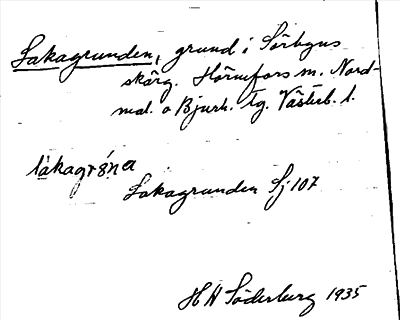 Lakagrunden, grund i Sörbyns
skärg. Hörnefors sn. Nord-
mal. o Bjurh. tg. Västerb. l.
làkagrö́na
Lakagrunden Sj 107
H H Söderburg 1935